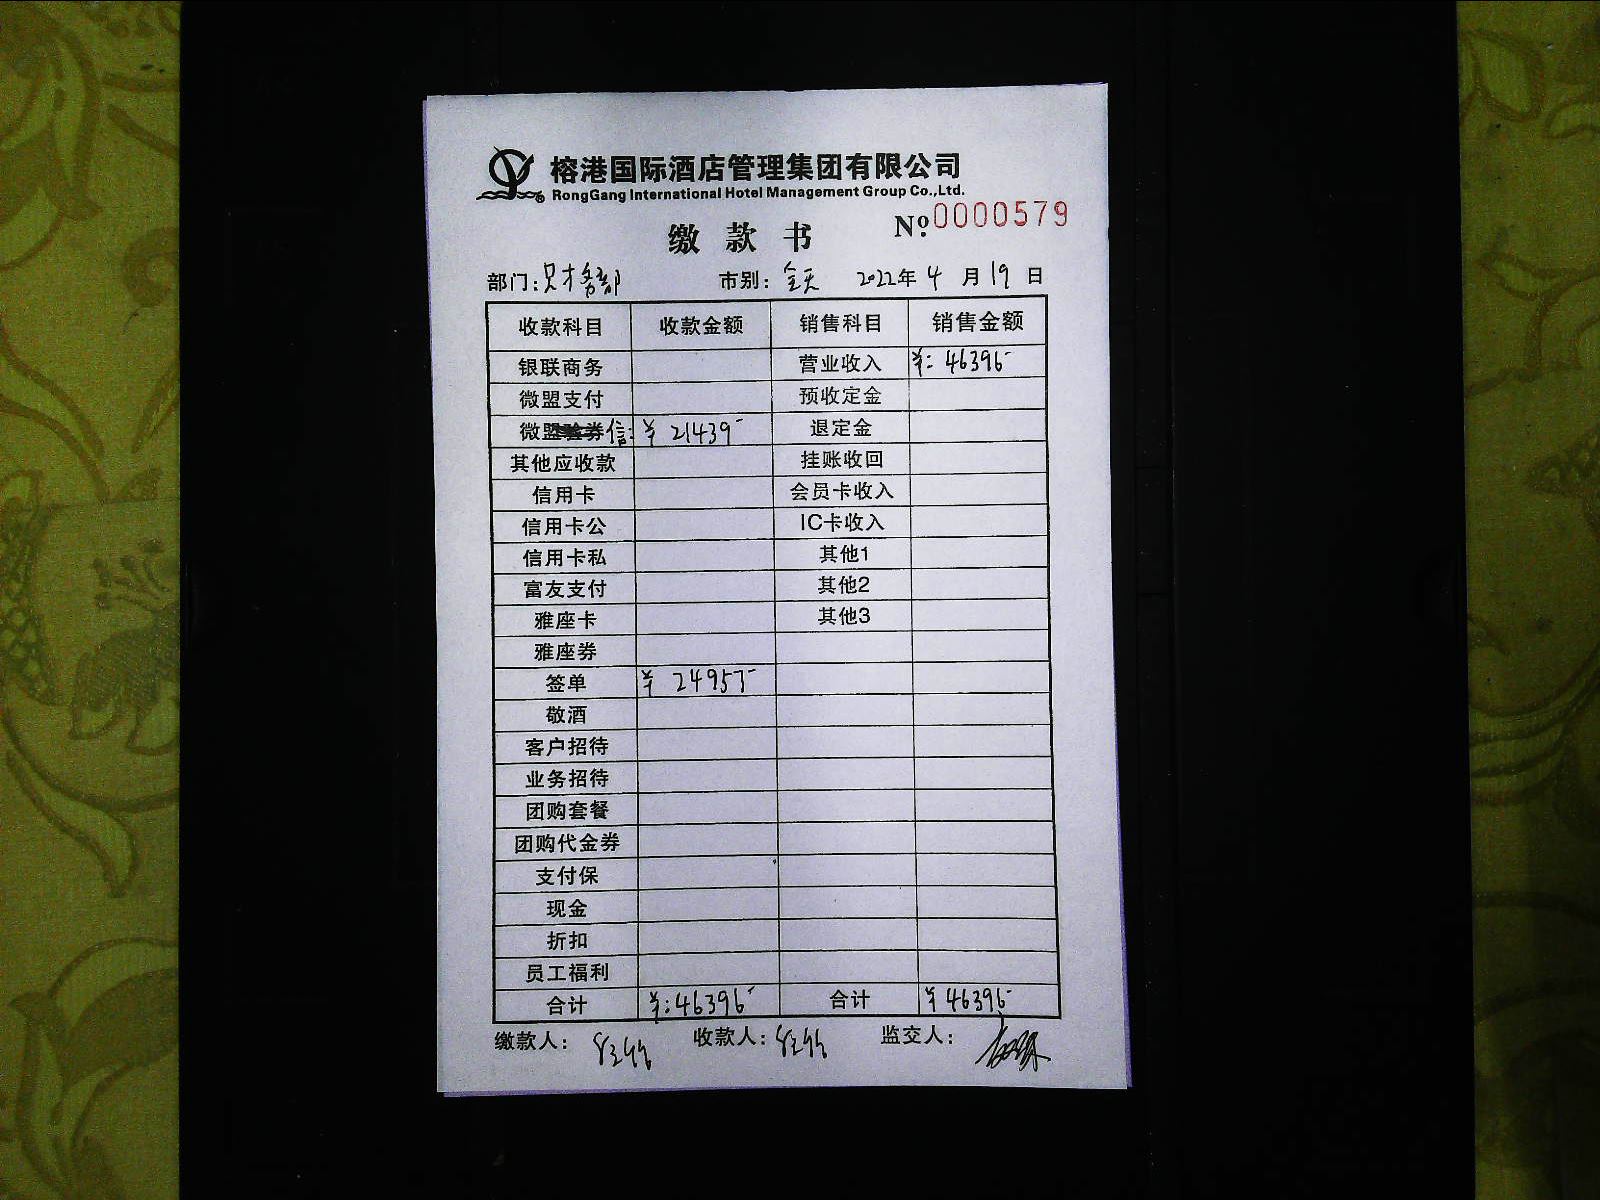 榕港国际酒店管理集团有限公司
RongGang International Hotel Management Group Co.,Ltd.
缴款书 №:0000579
部门:财务部 市别:全天 2022年4月19日
收款科目 收款金额 销售科目 销售金额
银联商务 营业收入 ¥:46396-
微盟支付 预收定金
微信: ¥21439- 退定金
其他应收款 挂账收回
信用卡 会员卡收入
信用卡公 IC卡收入
信用卡私 其他1
富友支付 其他2
雅座卡 其他3
雅座券
签单 ¥24957-
敬酒
客户招待
业务招待
团购套餐
团购代金券
支付保
现金
折扣
员工福利
合计 ¥:46396- 合计 ¥46396-
缴款人: 收款人: 监交人: